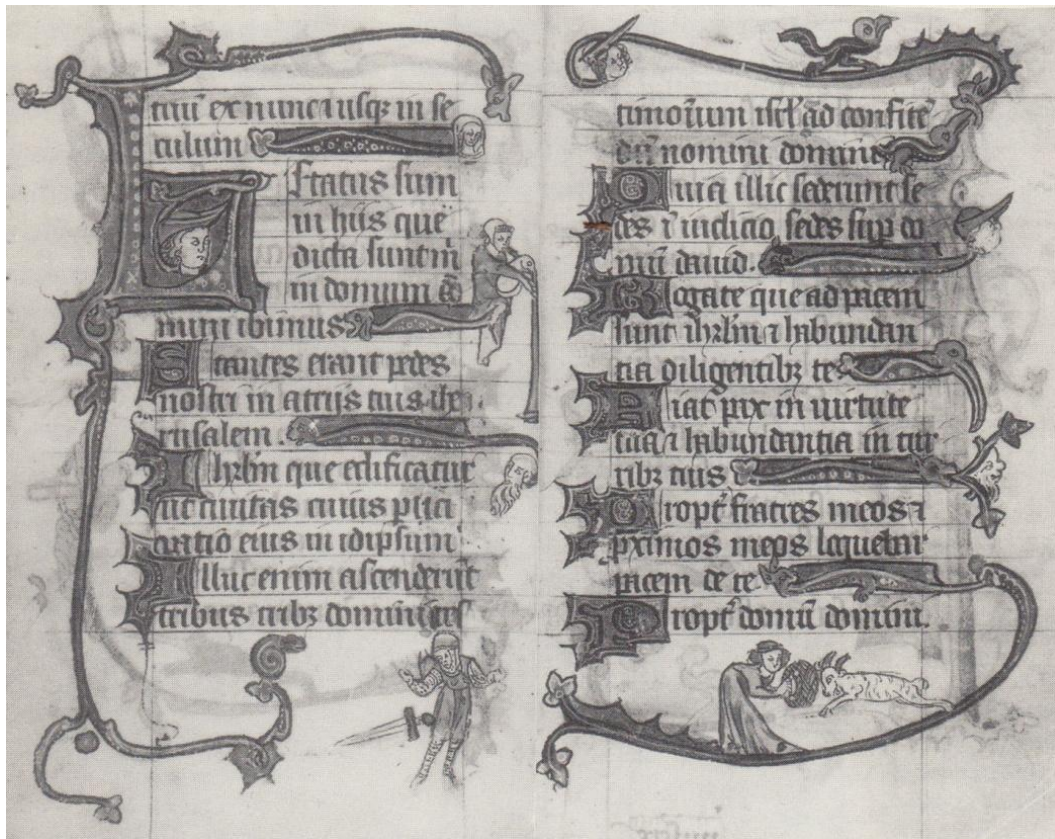 tuũ ex nunc ⁊ usqʒ in se
culum
Letatus sum
in hiis que
dicta sunt m̃
in domum dõ
mini ibimus
Stantes erant pedes
nostri in atriis tuis ihe
rusalem.
Ihrl̃m que edificatur
ut ciuitas cuius p̃tici
patiõ eius in idipsum
Illuc enim ascenderũt
tribus tribʒ domini tes
timonium isrl̃ ad confitẽ
dũ nomini domini
Quia illic sederunt se
des ĩ iudicio sedes sup̃ do
mũ dauid.
Rogate que ad pacem
sunt ihrl̃m ⁊ habundan
tia diligentibʒ te
Fiat pax in uirtute
tua ⁊ habundantia in tur
ribʒ tuis
Propt̃ fratres meos ⁊
pximos meos loquebar
pacem de te
Propt̃ domũ domini.